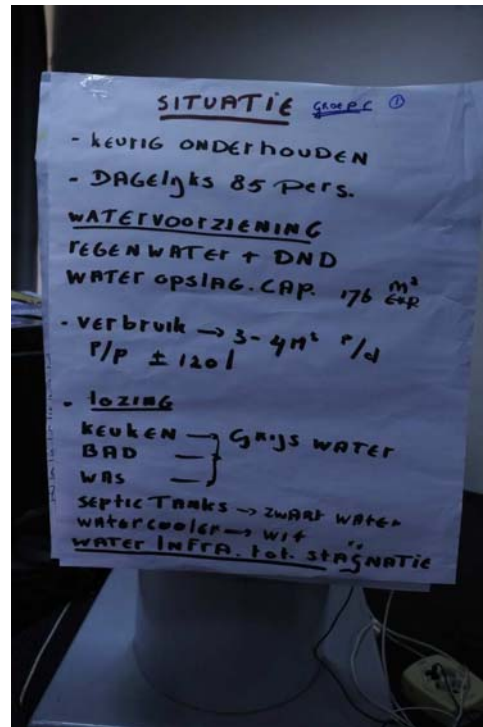 SITUATIE GROEP C ①
- KEURIG ONDERHOUDEN
- DAGElijks 85 Pers.
WATERVOORZIENING
REGENWATER + DND
WATER OPSLAG. CAP. 176 m³
- Verbruik → 3-4 P/d
P/P ± 120 l
- lozing
KEUKEN → GRIJS WATER
BAD —
WAS —
SEPTIC TANKS → ZWART WATER
WATERCOOLER → WIT "
WATER INFRA. tot. STAGNATIE